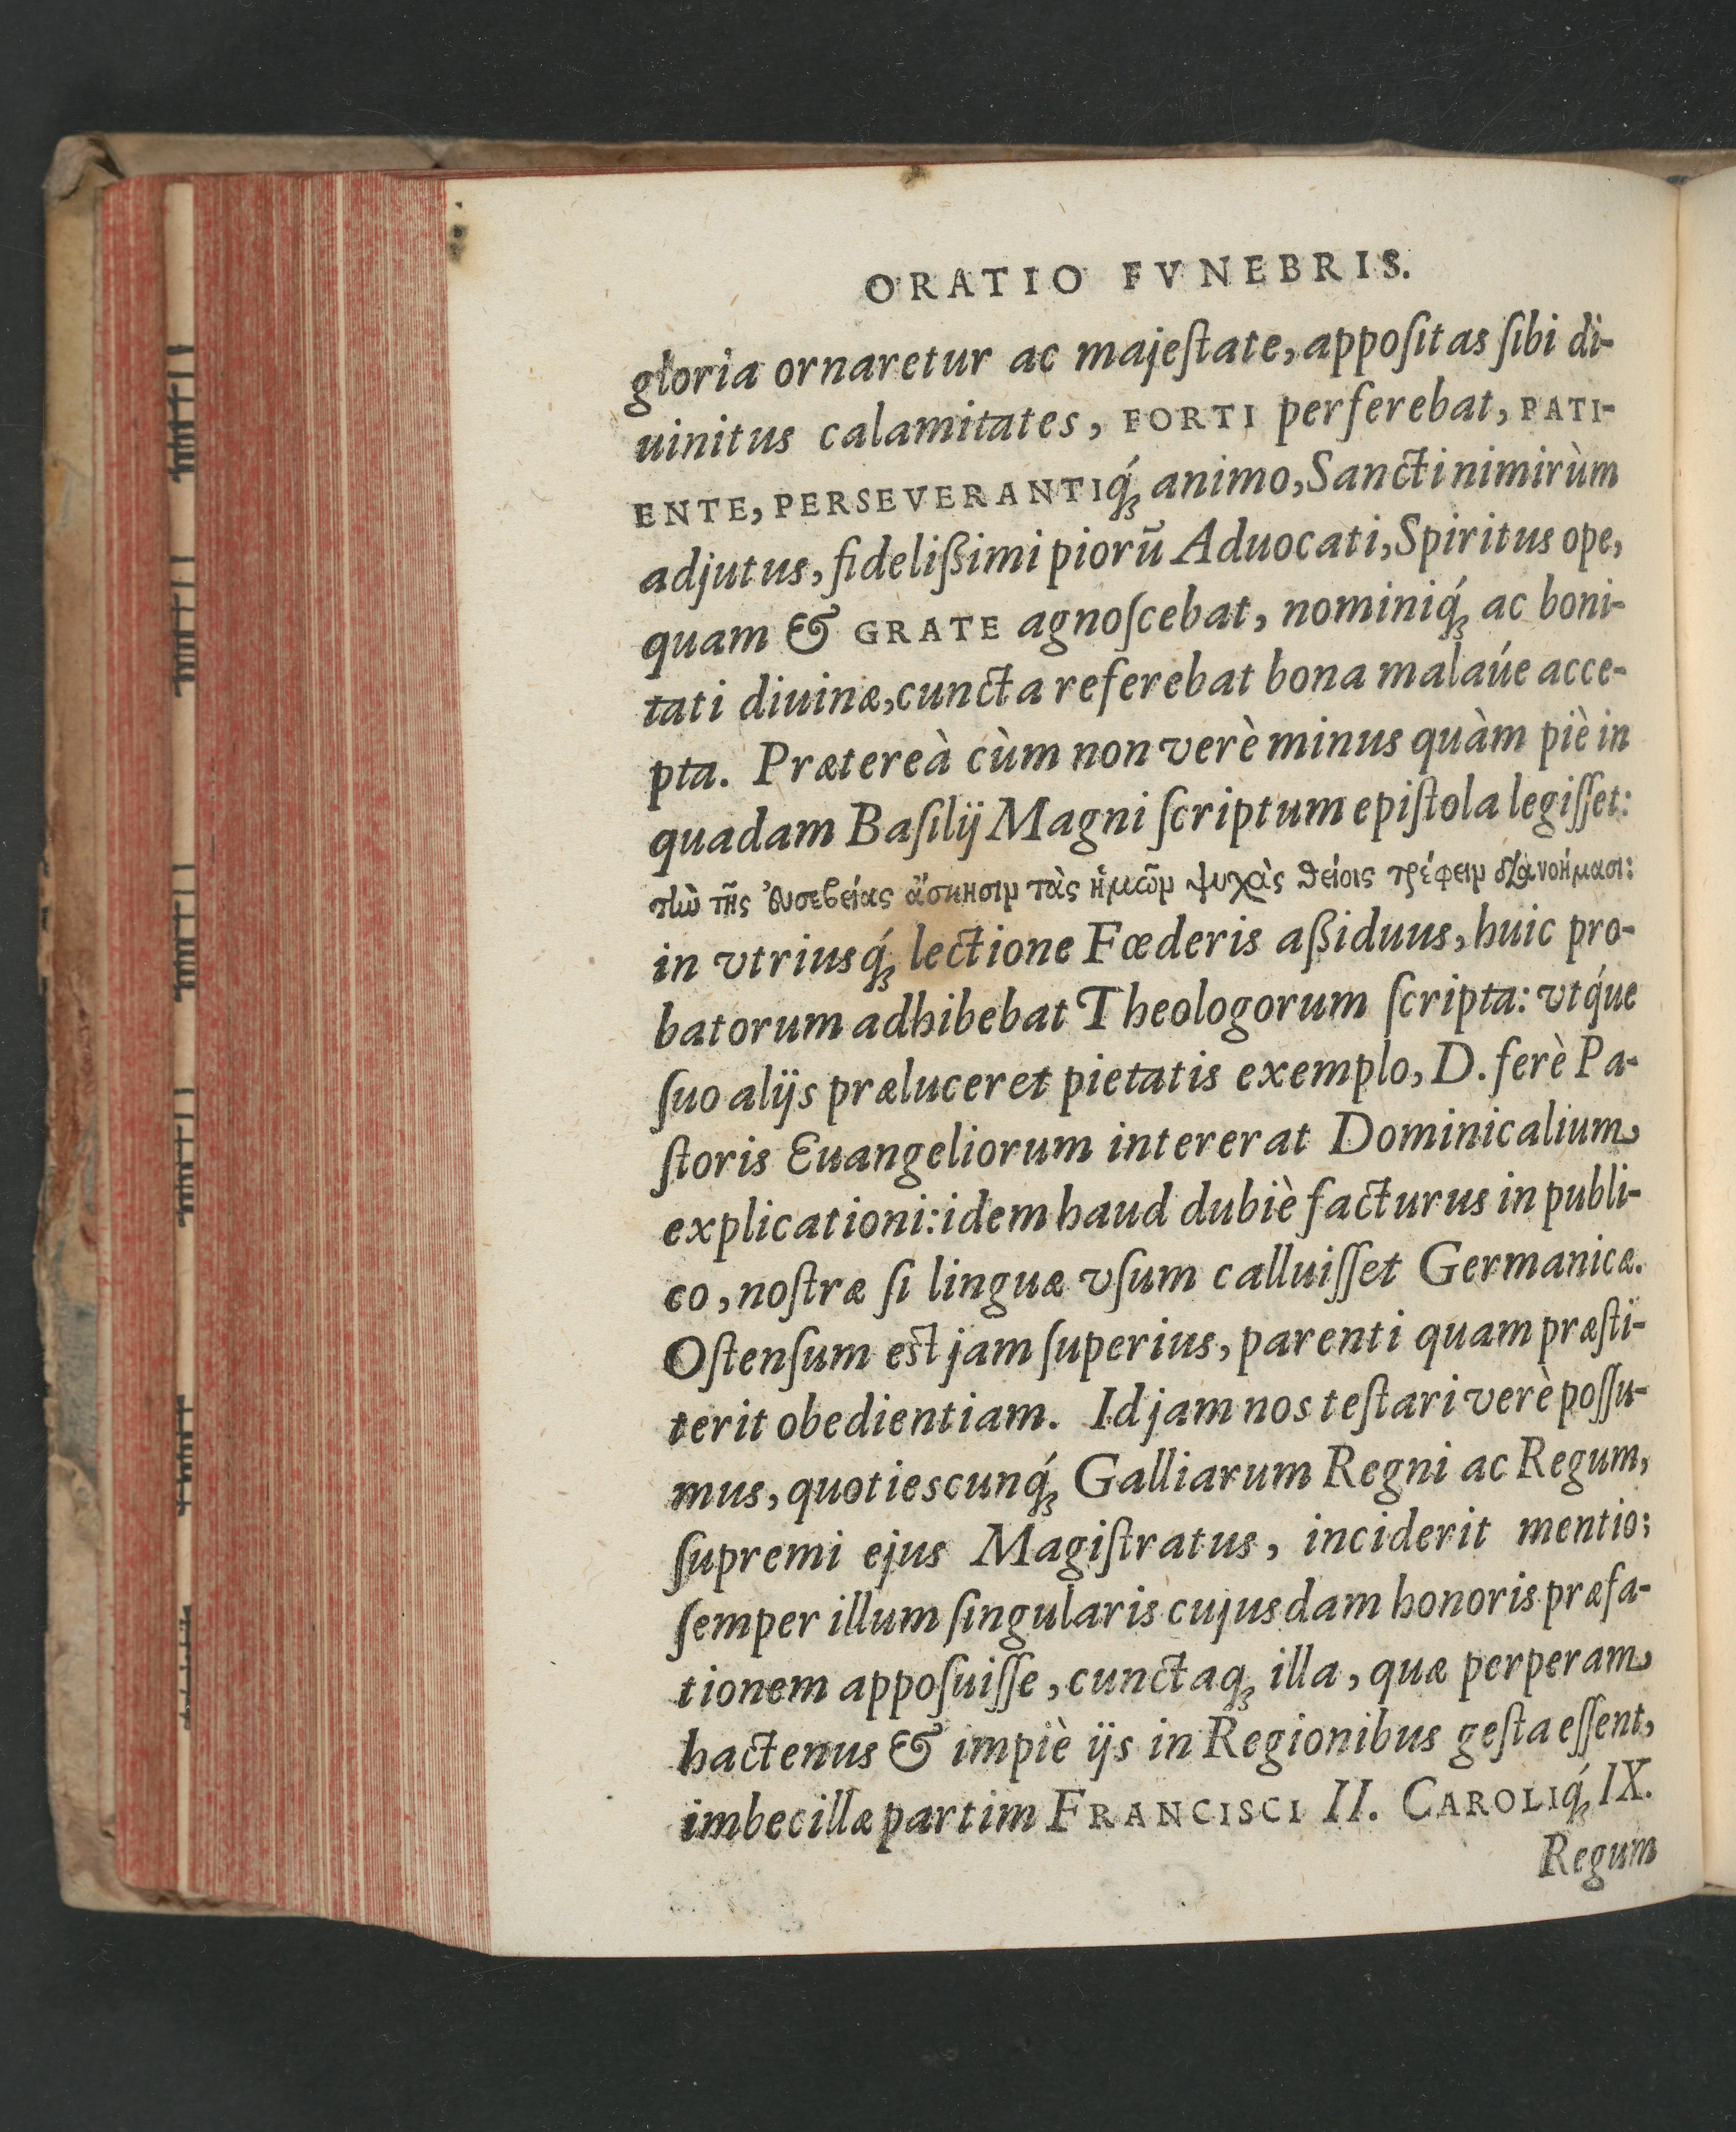 ORATIO FVNEBRIS.
gloria ornaretur ac majeſtate, appoſitas ſibi di-
uinitus calamitates, FORTI perferebat, PATI-
ENTE, PERSEVERANTIq́ꝫ animo, Sancti nimirùm
adjutus, fidelißimi piorũ Aduocati, Spiritus ope,
quam & GRATE agnoſcebat, nominiq́ꝫ ac boni-
tati diuinæ, cuncta referebat bona malaúe acce-
pta. Prætereà cùm non verè minus quàm piè in
quadam Baſilij Magni ſcriptum epiſtola legiſſet:
τὴν τῆς εὐσεβείας ἄσκησιν τὰς ἡμῶν ψυχὰς θείοις τρέφειν διανοήμασι:
in vtriusq́ꝫ lectione Fœderis aßiduus, huic pro-
batorum adhibebat Theologorum ſcripta: vtq́ue
ſuo alijs præluceret pietatis exemplo, D. ferè Pa-
ſtoris Euangeliorum intererat Dominicalium
explicationi: idem haud dubiè facturus in publi-
co, noſtræ ſi linguæ vſum calluiſſet Germanicæ.
Oſtenſum est jam ſuperius, parenti quam præſti-
terit obedientiam. Id jam nos teſtari verè poſſu-
mus, quotiescunq́ꝫ Galliarum Regni ac Regum,
ſupremi ejus Magiſtratus, inciderit mentio:
ſemper illum ſingularis cujusdam honoris præfa-
tionem appoſuiſſe, cunctaqꝫ illa, quæ perperam
hactenus & impiè ijs in Regionibus geſta eſſent,
imbecillæ partim FRANCISCI II. CAROLIq́ꝫ IX.
Regum